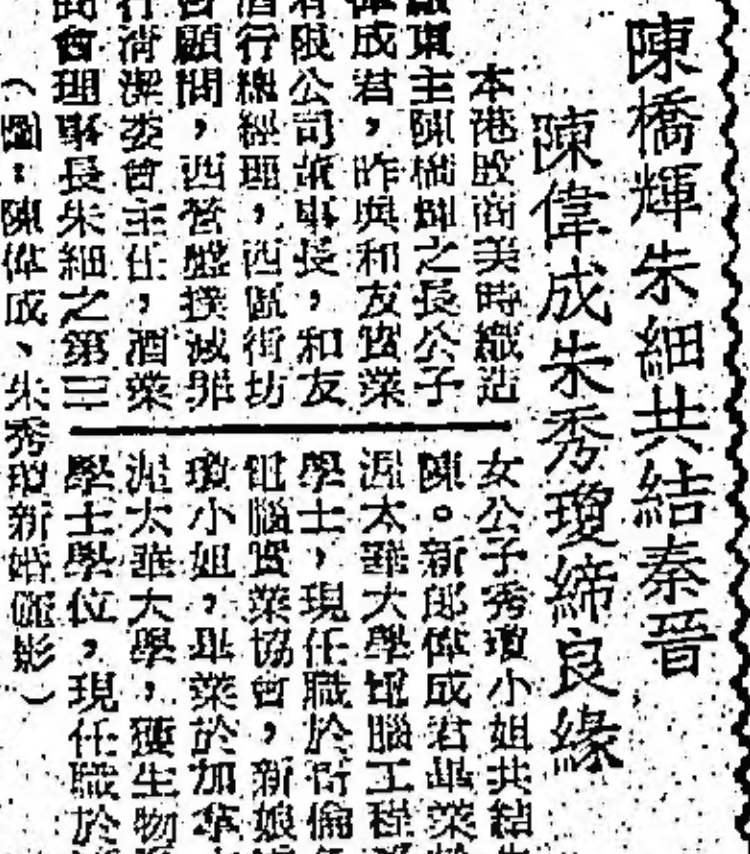 陳橋輝朱細共結秦晉
陳偉成朱秀瓊締良緣
本港殷商美時織造
東主陳橋輝之長公子
偉成君,昨與和友實業
有限公司董事長,和友
酒行總經理,西區街坊
會顧問,西營盤撲滅罪
行清潔委會主任,酒業
商會理事長朱細之第三
女公子秀瓊小姐共結
陳。新郎偉成君畢業
渥太華大學電腦工程
學士,現任職於
電腦實業協會,新娘
瓊小姐,畢業於加拿
渥太華大學,獲生物
學士學位,現任職於
(圖:陳偉成、朱秀瓊新婚儷影)